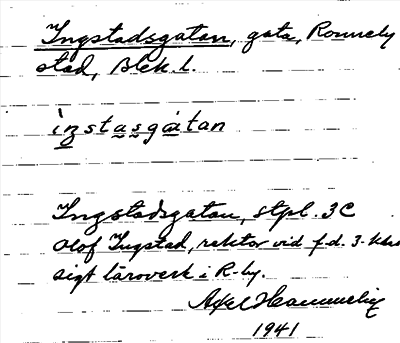 Ingstadsgatan, gata, Ronneby
stad, Blek. l.
ìŋstasgàtan
Ingstadsgatan, stpl. 3C
Olof Ingstad, rektor vid f.d. 3-klas
sigt läroverk i R-by.
Axel
1941